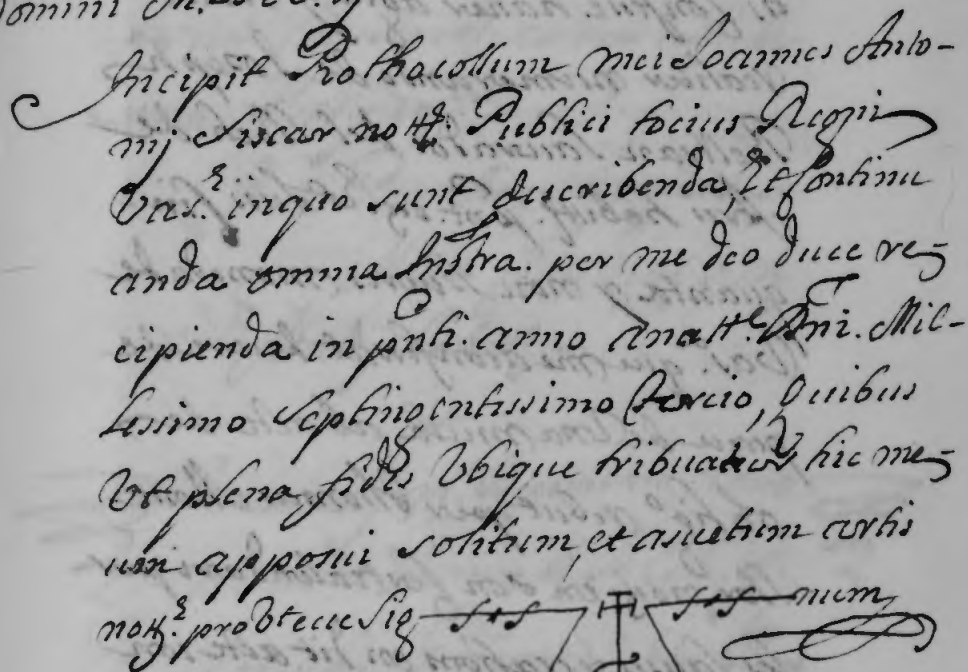 Domini
Incipit Prothocollum mei Joannes Anto-
nij Siscar nott. Publici tocius Regni
Val. inquo sunt describenda, Et Continu
anda omnia Instra. per me deo duce re-
cipienda in pnti. anno anatte. Dni. Mil-
lessimo Septingentessimo Tercio, Quibus
Vt plena fides Vbique tribuatur hic me-
um apposui solitum, et asuetum artis
nott. pro Vt ecce Sig num